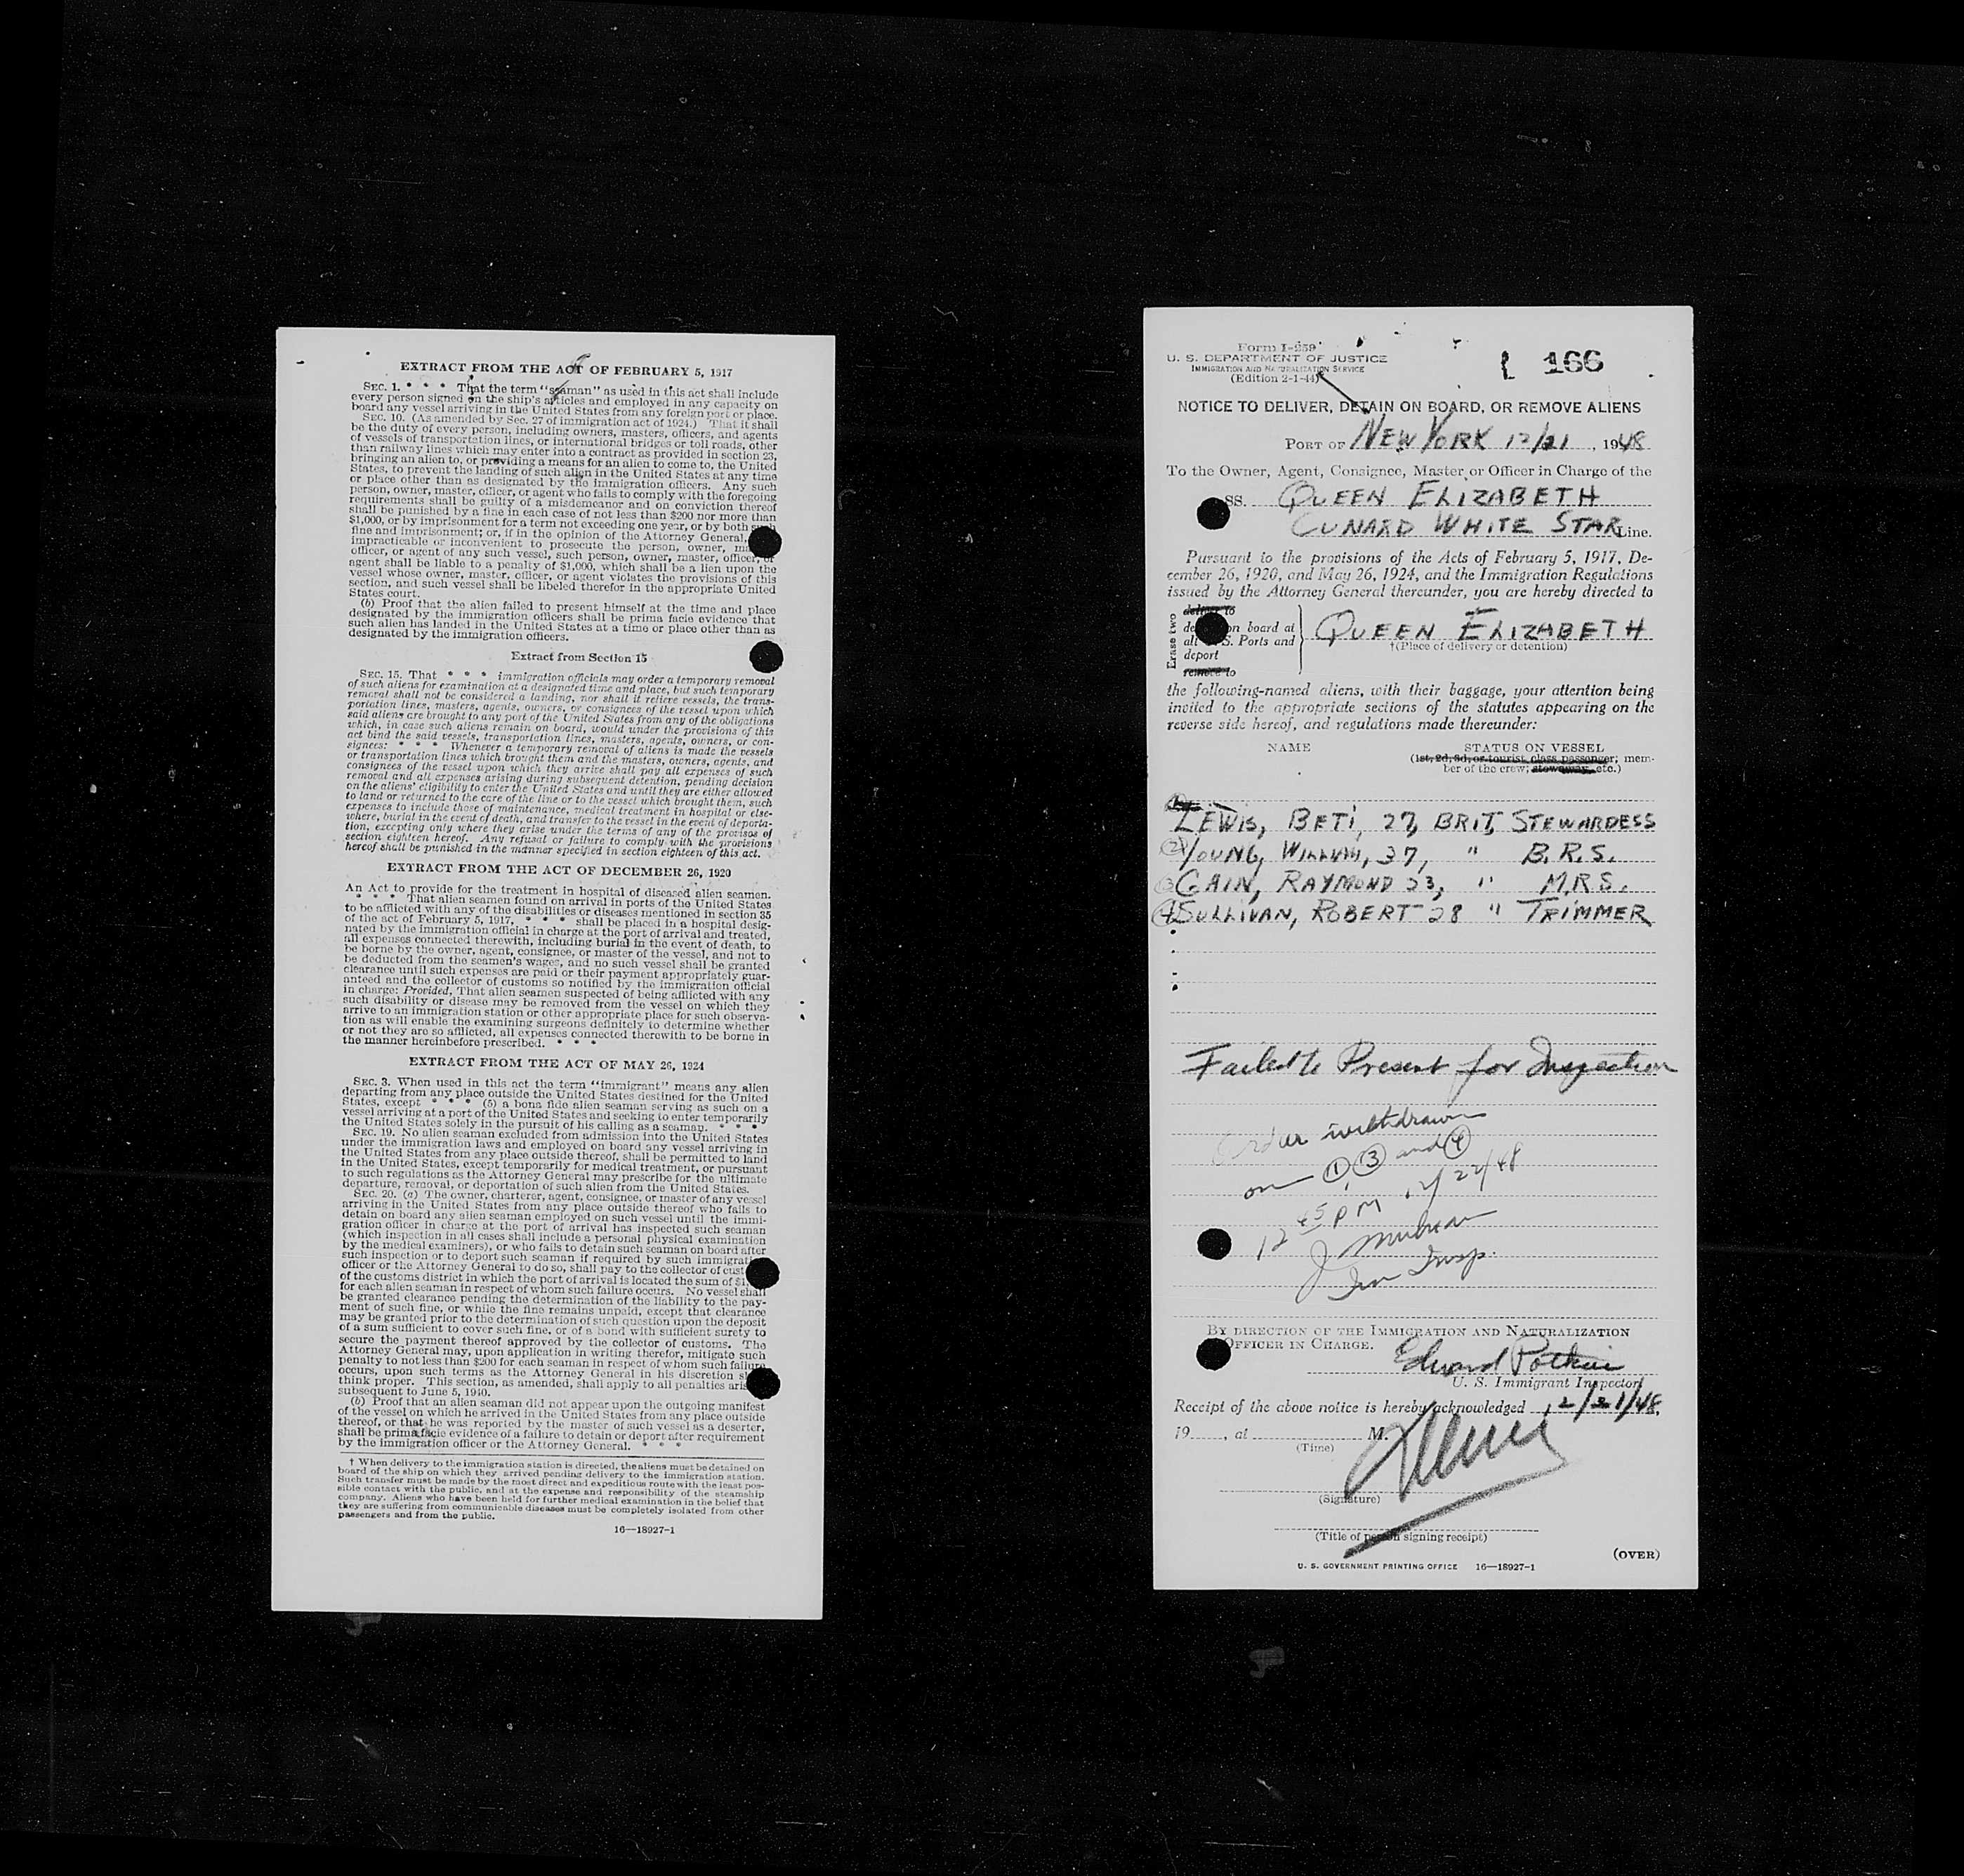 EXTRACT FROM THE ACT OF FEBRUARY 5, 1917
SEC. 1. * * * That the term "seaman" as used in this act shall include
every person signed on the ship's articles and employed in any capacity on
board any vessel arriving in the United States from any foreign port or place.
SEC. 10. (As amended by Sec. 27 of immigration act of 1924.) That it shall
be the duty of every person, including owners, masters, officers, and agents
of vessels of transportation lines, or international bridges or toll roads, other
than railway lines which may enter into a contract as provided in section 23,
bringing an alien to, or providing a means for an alien to come to, the United
States, to prevent the landing of such alien in the United States at any time
or place other than as designated by the immigration officers. Any such
person, owner, master, officer, or agent who fails to comply with the foregoing
requirements shall be guilty of a misdemeanor and on conviction thereof
shall be punished by a fine in each case of not less than $200 nor more than
$1,000, or by imprisonment for a term not exceeding one year, or by both such
fine and imprisonment; or, if in the opinion of the Attorney General,
impracticable or inconvenient to prosecute the person, owner,
officer, or agent of any such vessel, such person, owner, master, officer, or
agent shall be liable to a penalty of $1,000, which shall be a lien upon the
vessel whose owner, master, officer, or agent violates the provisions of this
section, and such vessel shall be libeled therefor in the appropriate United
States court.
(b) Proof that the alien failed to present himself at the time and place
designated by the immigration officers shall be prima facie evidence that
such alien has landed in the United States at a time or place other than as
designated by the immigration officers.
Extract from Section 15
SEC. 15. That * * * immigration officials may order a temporary removal
of such aliens for examination at a designated time and place, but such temporary
removal shall not be considered a landing, nor shall it relieve vessels, the trans-
portation lines, masters, agents, owners, or consignees of the vessel upon which
said aliens are brought to any port of the United States from any of the obligations
which, in case such aliens remain on board, would under the provisions of this
act bind the said vessels, transportation lines, masters, agents, owners, or con-
signees: * * * Whenever a temporary removal of aliens is made the vessels
or transportation lines which brought them and the masters, owners, agents, and
consignees of the vessel upon which they arrive shall pay all expenses of such
removal and all expenses arising during subsequent detention, pending decision
on the aliens' eligibility to enter the United States and until they are either allowed
to land or returned to the care of the line or to the vessel which brought them, such
expenses to include those of maintenance, medical treatment in hospital or else-
where, burial in the event of death, and transfer to the vessel in the event of deporta-
tion, excepting only where they arise under the terms of any of the provisos of
section eighteen hereof. Any refusal or failure to comply with the provisions
hereof shall be punished in the manner specified in section eighteen of this act.
EXTRACT FROM THE ACT OF DECEMBER 26, 1920
An Act to provide for the treatment in hospital of diseased alien seamen.
* * * That alien seamen found on arrival in ports of the United States
to be afflicted with any of the disabilities or diseases mentioned in section 35
of the act of February 5, 1917, * * * shall be placed in a hospital desig-
nated by the immigration official in charge at the port of arrival and treated,
all expenses connected therewith, including burial in the event of death, to
be borne by the owner, agent, consignee, or master of the vessel, and not to
be deducted from the seamen's wages, and no such vessel shall be granted
clearance until such expenses are paid or their payment appropriately guar-
anteed and the collector of customs so notified by the immigration official
in charge: Provided, That alien seamen suspected of being afflicted with any
such disability or disease may be removed from the vessel on which they
arrive to an immigration station or other appropriate place for such observa-
tion as will enable the examining surgeons definitely to determine whether
or not they are so afflicted, all expenses connected therewith to be borne in
the manner hereinbefore prescribed. * * *
EXTRACT FROM THE ACT OF MAY 26, 1924
SEC. 3. When used in this act the term "immigrant" means any alien
departing from any place outside the United States destined for the United
States, except * * * (5) a bona fide alien seaman serving as such on a
vessel arriving at a port of the United States and seeking to enter temporarily
the United States solely in the pursuit of his calling as a seaman. * * *
SEC. 19. No alien seaman excluded from admission into the United States
under the immigration laws and employed on board any vessel arriving in
the United States from any place outside thereof, shall be permitted to land
in the United States, except temporarily for medical treatment, or pursuant
to such regulations as the Attorney General may prescribe for the ultimate
departure, removal, or deportation of such alien from the United States.
SEC. 20. (a) The owner, charterer, agent, consignee, or master of any vessel
arriving in the United States from any place outside thereof who fails to
detain on board any alien seaman employed on such vessel until the immi-
gration officer in charge at the port of arrival has inspected such seaman
(which inspection in all cases shall include a personal physical examination
by the medical examiners), or who fails to detain such seaman on board after
such inspection or to deport such seaman if required by such immigration
officer or the Attorney General to do so, shall pay to the collector of customs
of the customs district in which the port of arrival is located the sum of
for each alien seaman in respect of whom such failure occurs. No vessel shall
be granted clearance pending the determination of the liability to the pay-
ment of such fine, or while the fine remains unpaid, except that clearance
may be granted prior to the determination of such question upon the deposit
of a sum sufficient to cover such fine, or of a bond with sufficient surety to
secure the payment thereof approved by the collector of customs. The
Attorney General may, upon application in writing therefor, mitigate such
penalty to not less than $200 for each seaman in respect of whom such failure
occurs, upon such terms as the Attorney General in his discretion
think proper. This section, as amended, shall apply to all penalties
subsequent to June 5, 1940.
(b) Proof that an alien seaman did not appear upon the outgoing manifest
of the vessel on which he arrived in the United States from any place outside
thereof, or that he was reported by the master of such vessel as a deserter,
shall be prima facie evidence of a failure to detain or deport after requirement
by the immigration officer or the Attorney General. * * *
† When delivery to the immigration station is directed, the aliens must be detained on
board of the ship on which they arrived pending delivery to the immigration station.
Such transfer must be made by the most direct and expeditious route with the least pos-
sible contact with the public, and at the expense and responsibility of the steamship
company. Aliens who have been held for further medical examination in the belief that
they are suffering from communicable diseases must be completely isolated from other
passengers and from the public.
16—18927-1
Form I-259
U. S. DEPARTMENT OF JUSTICE
IMMIGRATION AND NATURALIZATION SERVICE
(Edition 2-1-44)
166
NOTICE TO DELIVER, DETAIN ON BOARD, OR REMOVE ALIENS
PORT OF NEW YORK 12/21, 1948
To the Owner, Agent, Consignee, Master or Officer in Charge of the
SS. QUEEN ELIZABETH
CUNARD WHITE STAR Line.
Pursuant to the provisions of the Acts of February 5, 1917, De-
cember 26, 1920, and May 26, 1924, and the Immigration Regulations
issued by the Attorney General thereunder, you are hereby directed to
Erase two
deliver to
on board at
all U.S. Ports and
deport
remove to
QUEEN ELIZABETH
†(Place of delivery or detention)
the following-named aliens, with their baggage, your attention being
invited to the appropriate sections of the statutes appearing on the
reverse side hereof, and regulations made thereunder:
NAME STATUS ON VESSEL
(1st, 2d, 3d, or tourist class passenger; mem-
ber of the crew; stowaway, etc.)
1 LEWIS, BETI, 27, BRIT, STEWARDESS
2 YOUNG, WILLIAM, 37, " B.R.S.
3 CAIN, RAYMOND 23, " M.R.S.
4 SULLIVAN, ROBERT 28 " TRIMMER
Failed to Present for Inspection
Order withdrawn
on 1, 3 and 4
12 45 PM 12/22/48
Imm Insp.
BY DIRECTION OF THE IMMIGRATION AND NATURALIZATION
OFFICER IN CHARGE. Edward
U. S. Immigrant Inspector
Receipt of the above notice is hereby acknowledged 12/21/48,
19 , at M.
(Time)
(Signature)
(Title of person signing receipt)
(OVER)
U. S. GOVERNMENT PRINTING OFFICE 16—18927-1